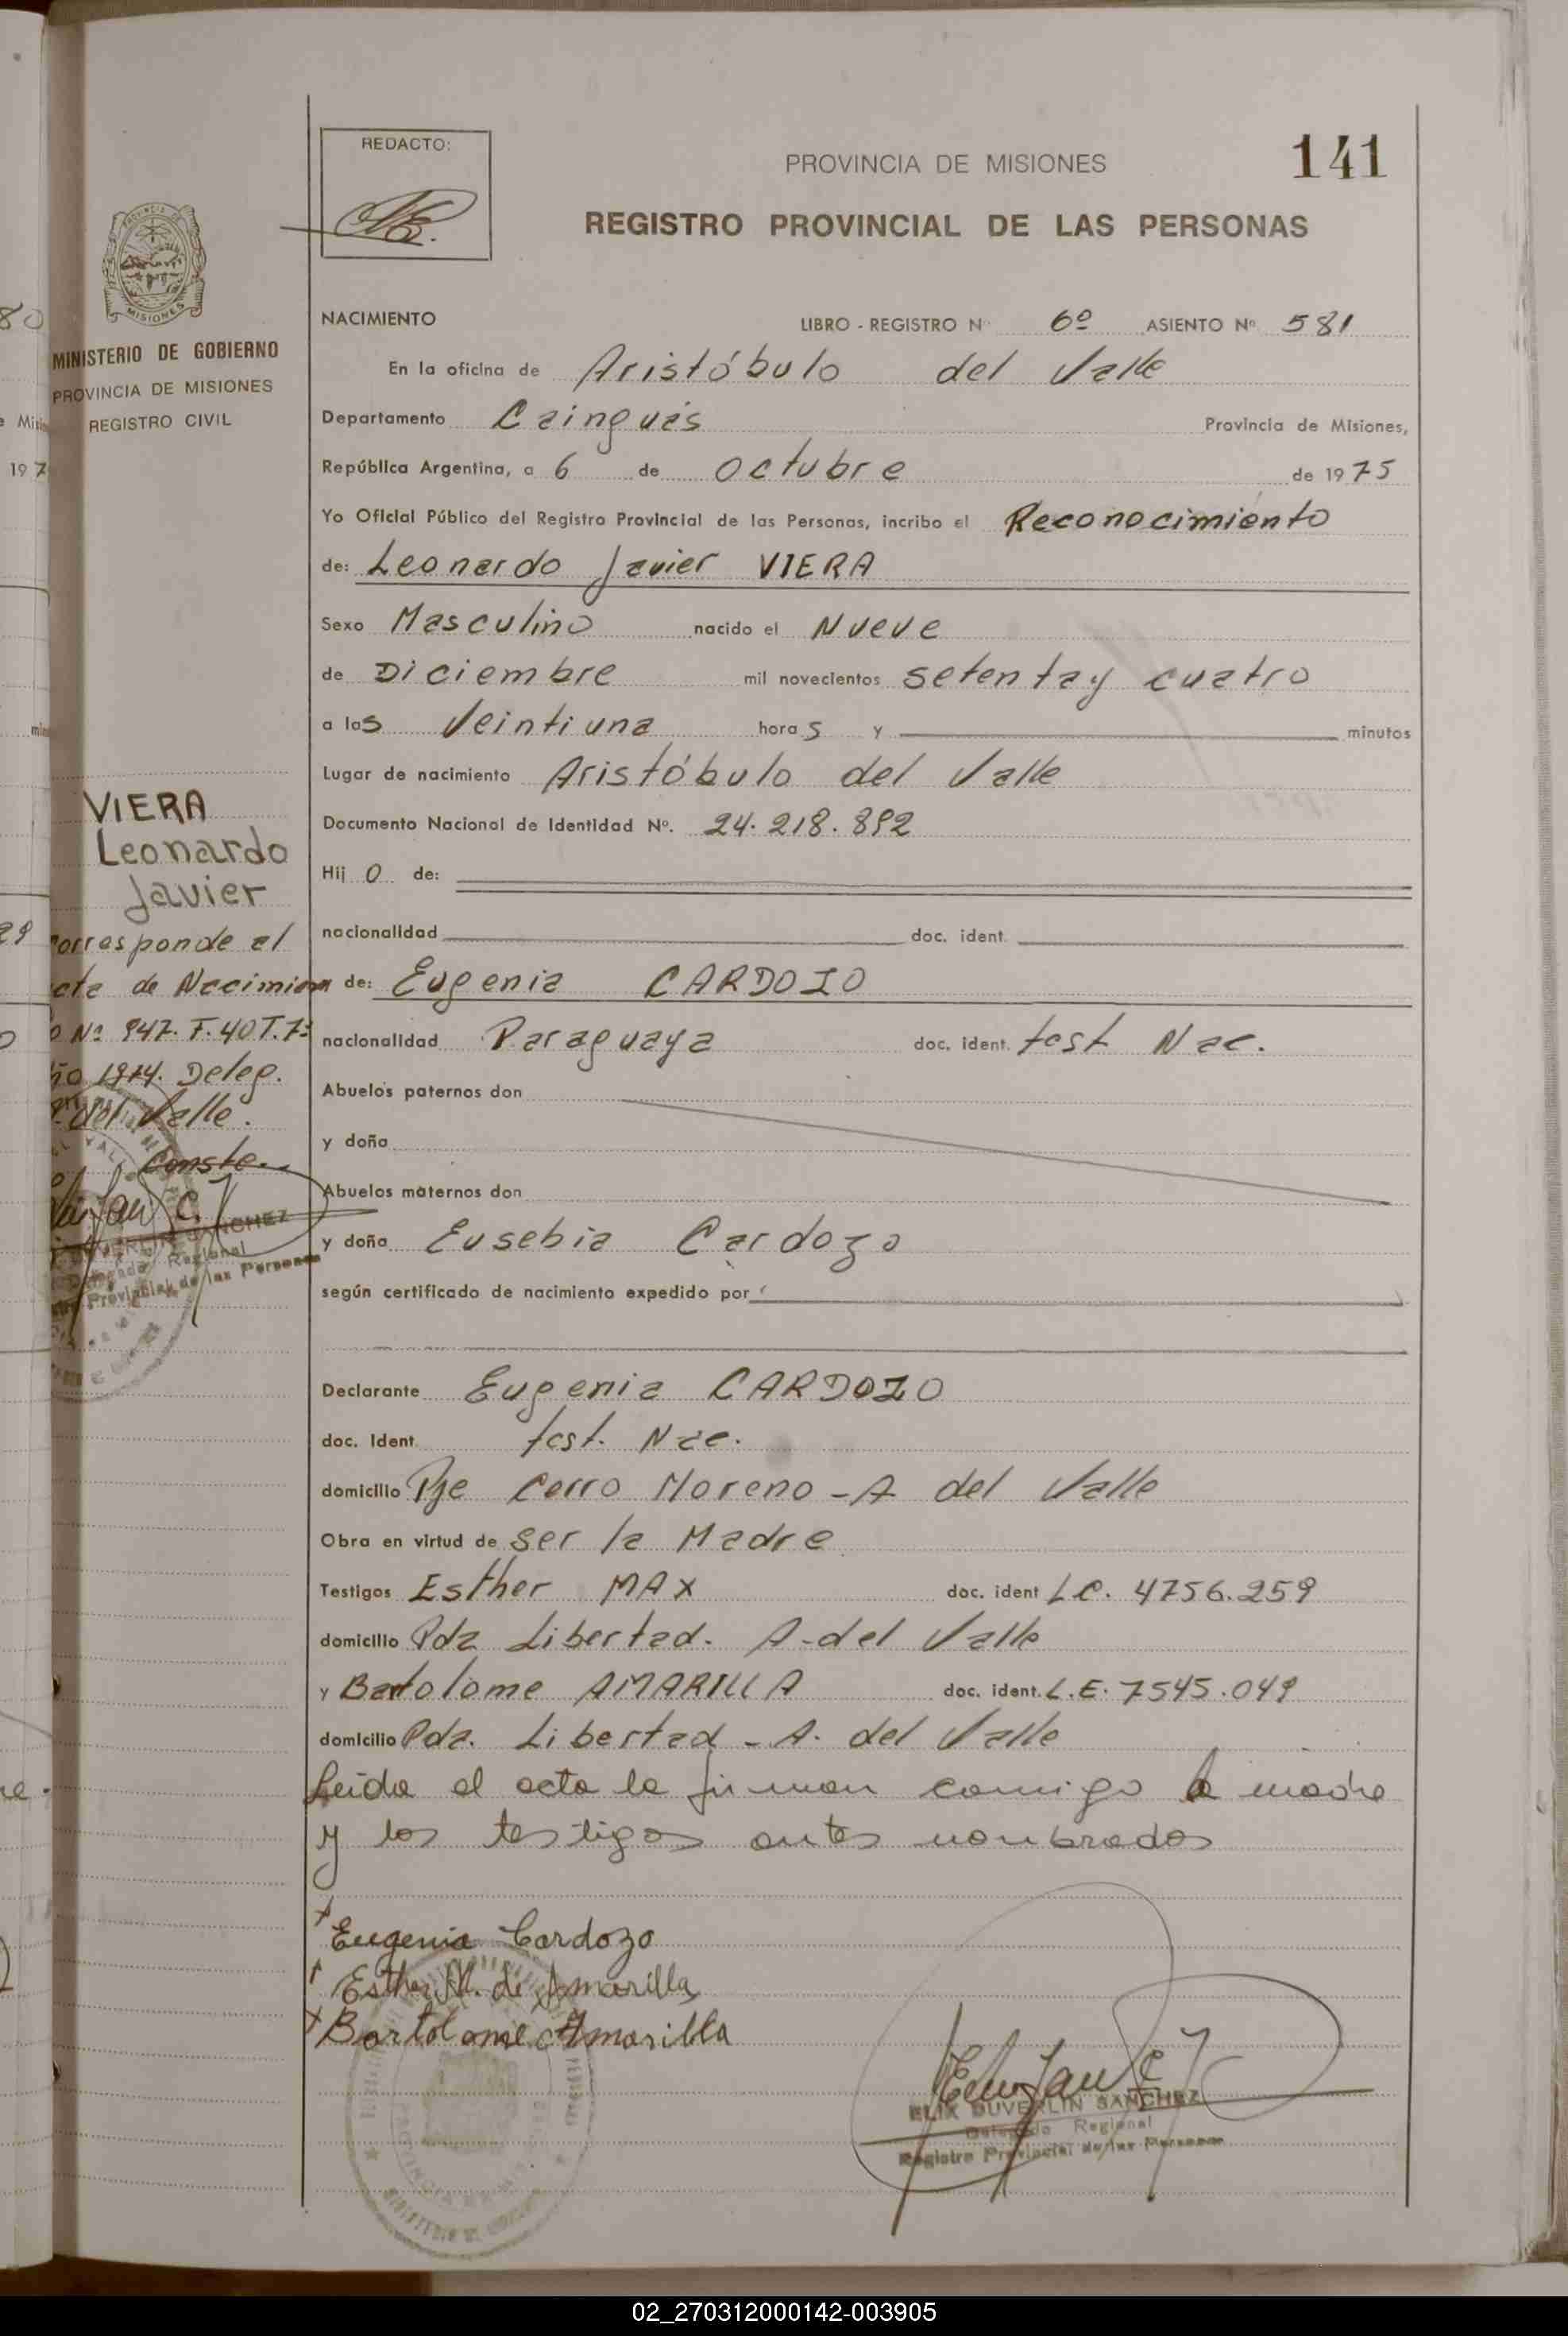 REDACTO:
PROVINCIA DE MISIONES
141
REGISTRO PROVINCIAL DE LAS PERSONAS
MISIONES
MINISTERIO DE GOBIERNO
PROVINCIA DE MISIONES
REGISTRO CIVIL
NACIMIENTO LIBRO - REGISTRO Nº 6º ASIENTO Nº 581
En la oficina de Aristóbulo del Valle
Departamento Cainguás Provincia de Misiones,
República Argentina, a 6 de octubre de 1975
Yo Oficial Público del Registro Provincial de las Personas, incribo el Reconocimiento
de: Leonardo Javier VIERA
Sexo Masculino nacido el Nueve
de Diciembre mil novecientos setenta y cuatro
a las Veintiuna horas y minutos
Lugar de nacimiento Aristóbulo del Valle
Documento Nacional de Identidad Nº. 24.218.892
Hijo de:
nacionalidad doc. ident.
de: Eugenia CARDOZO
nacionalidad Paraguaya doc. ident. test Nac.
Abuelos paternos don
y doña
Abuelos maternos don
y doña Eusebia Cardozo
según certificado de nacimiento expedido por
Declarante Eugenia CARDOZO
doc. Ident. test. Nac.
domicilio Pje Cerro Moreno - A del Valle
Obra en virtud de ser la Madre
Testigos Esther MAX doc. ident L.C. 4756.259
domicilio Pda Libertad. A-del Valle
y Bartolome AMARILLA doc. ident. L.E. 7545.049
domicilio Pda. Libertad - A. del Valle
Leida el acta la firman comigo la madre
y los testigos antes nombrados
Eugenia Cardozo
Esther M. de Amarilla
Bartolome Amarilla
ELIX DUVERLIN SANCHEZ
Delegado Regional
Registro Provincial de las Personas
VIERA
Leonardo
Javier
corresponde al
acta de Nacimien
Nº 947. F. 40 T.
1974. Deleg.
del Valle.
Conste.
SANCHEZ
Delegado Regional
Provincial de las Personas
02_270312000142-003905